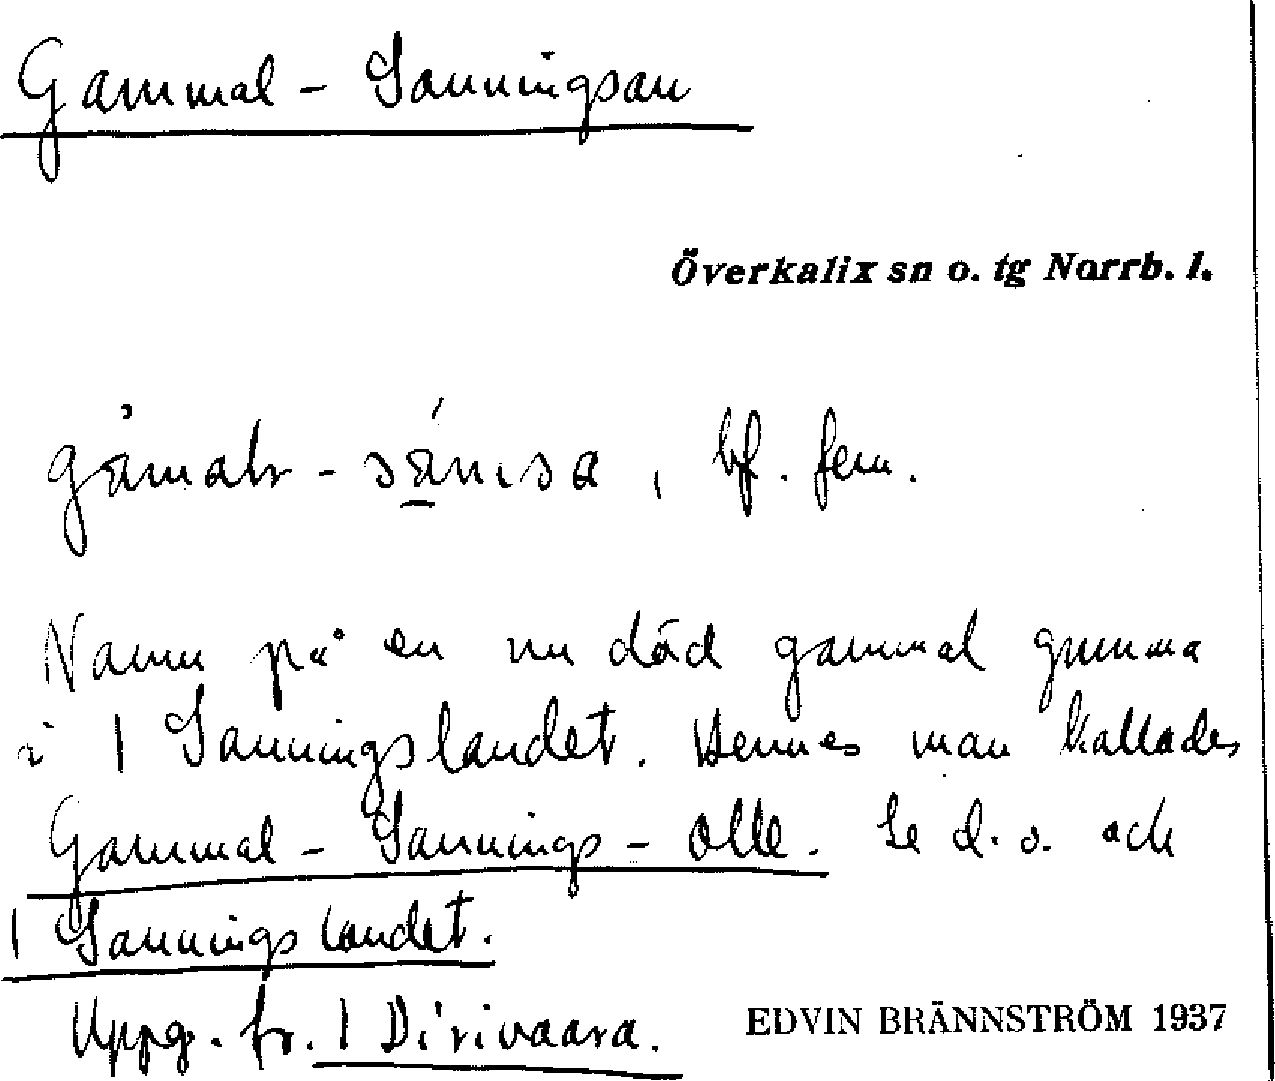 Gammal - Sanningsan
Överkalix sn o. tg Norrb. l.
bf. fem.
Namn på en nu död gammal gumma
i 1 Sanningslandet. Hennes man kallades
Gammal - Sannings - Olle. Se d. o. och
1 Sanningslandet.
Uppg. fr. 1 Dirivaara.
EDVIN BRÄNNSTRÖM 1937